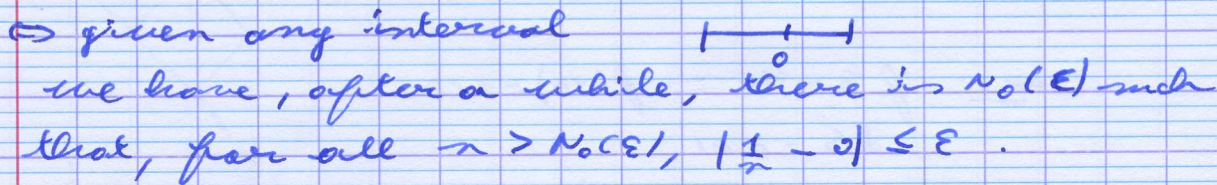 ⇔ given any interval
0
we have, after a while, there is N₀(ε) such
that, for all n > N₀(ε), |1/n - 0| ≤ ε.